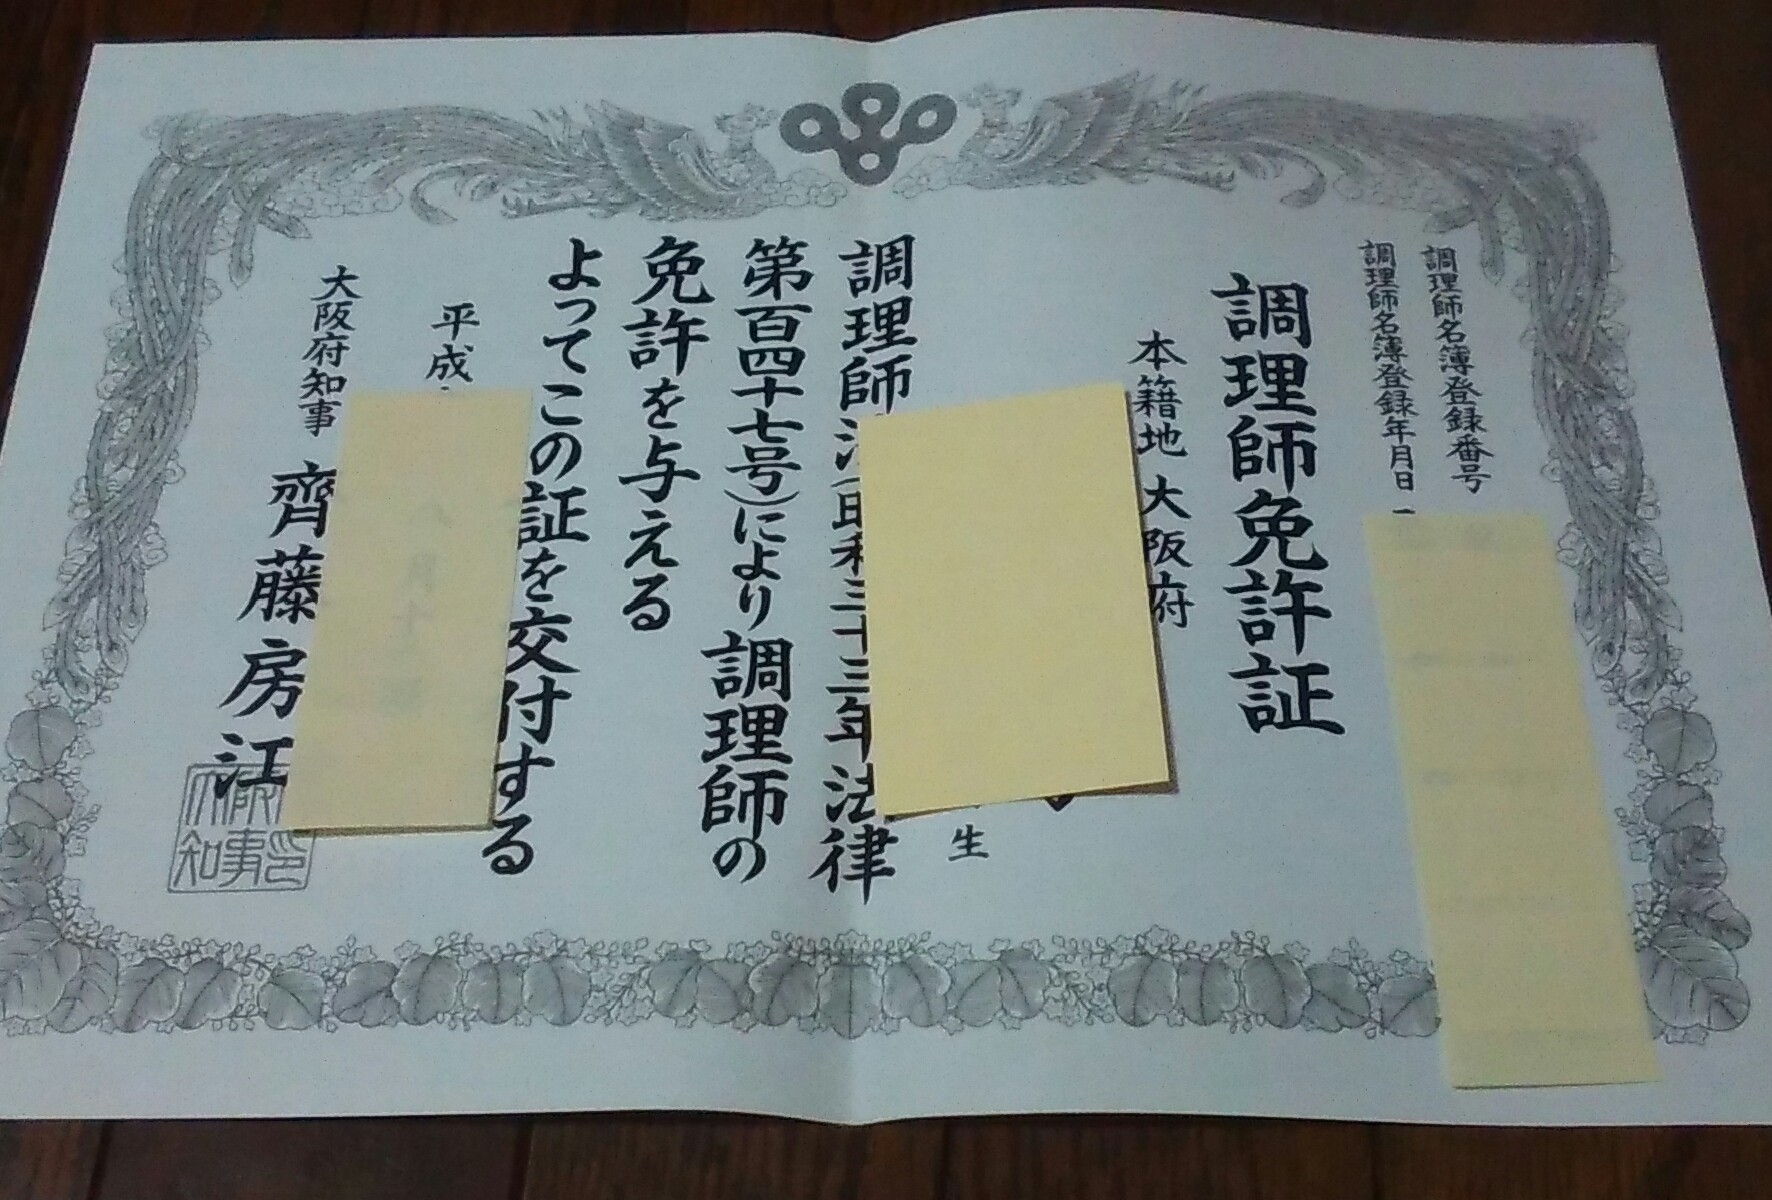 調理師名簿登録番号
調理師名簿登録年月日
調理師免許証
本籍地 大阪府
生
調理師法(昭和三十三年法律
第百四十七号)により調理師の
免許を与える
よってこの証を交付する
平成
大阪府知事 齊藤房江
大阪府知事印